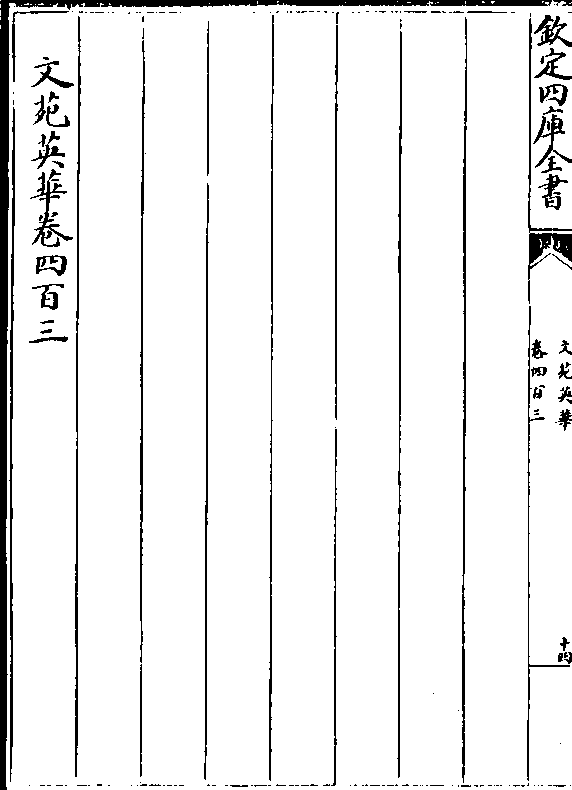 欽定四庫全書
文苑英華
卷四百三
十四
文苑英華卷四百三